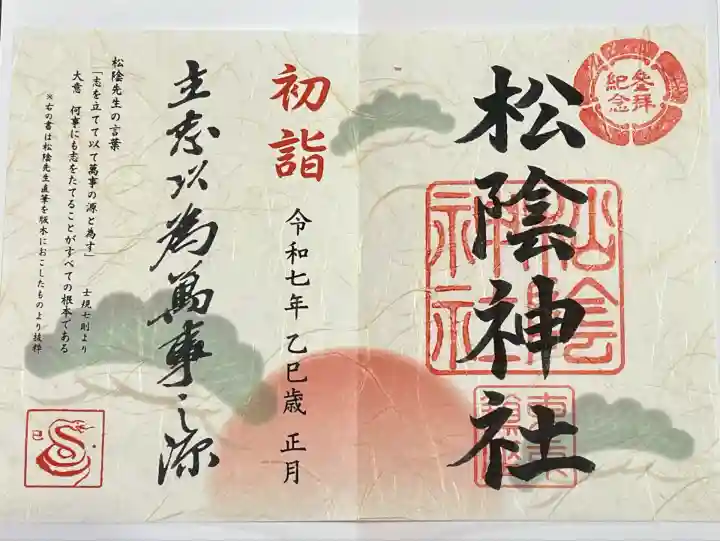 参拝
紀念
松陰神社
松陰
神社
初詣
令和七年 乙巳歳 正月
立志以為萬事之源
松陰先生の言葉
「志を立てて以て萬事の源と為す」
士規七則より
大意 何事にも志をたてることがすべての根本である
※右の書は松陰先生直筆を版木におこしたものより抜粋
巳